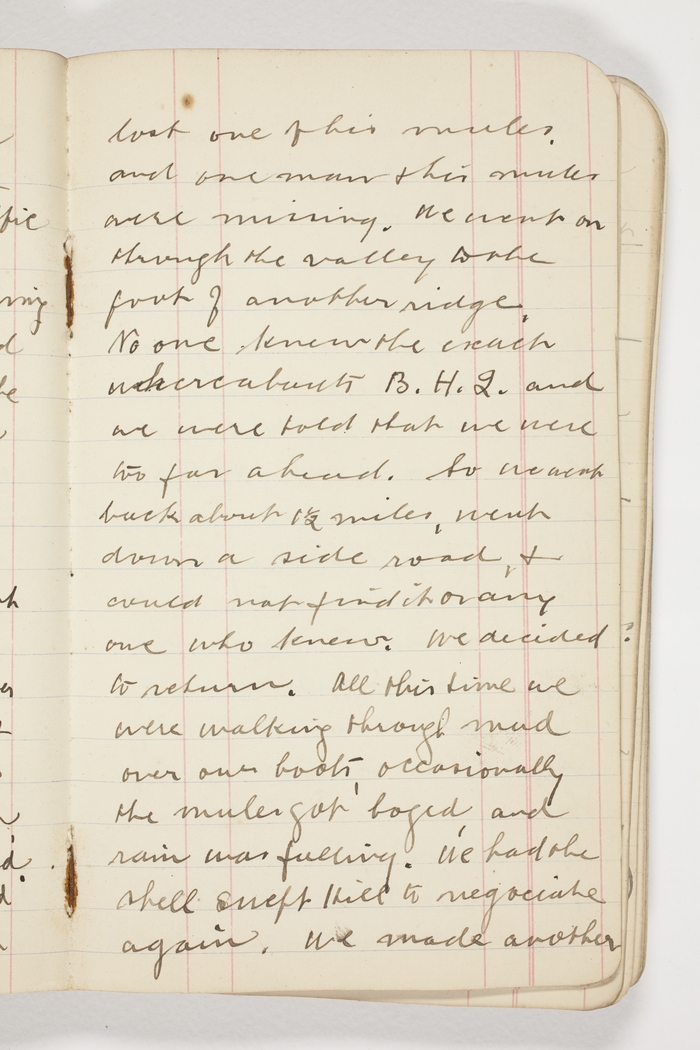 lost one of his mules,
and one man & his mules
were missing. We went on
through the valley to the
foot of another ridge,
No one knew the exact
whereabouts B. H. Q. and
we were told that we were
too far ahead. So we went
back about 1½ miles, went
down a side road, &
could not find it or any
one who knew. We decided
to return. All this time we
were walking through mud
over our boots, occasionally
the mules got boged and
rain was falling. We had the
shell swept Hill to negociate
again. We made another